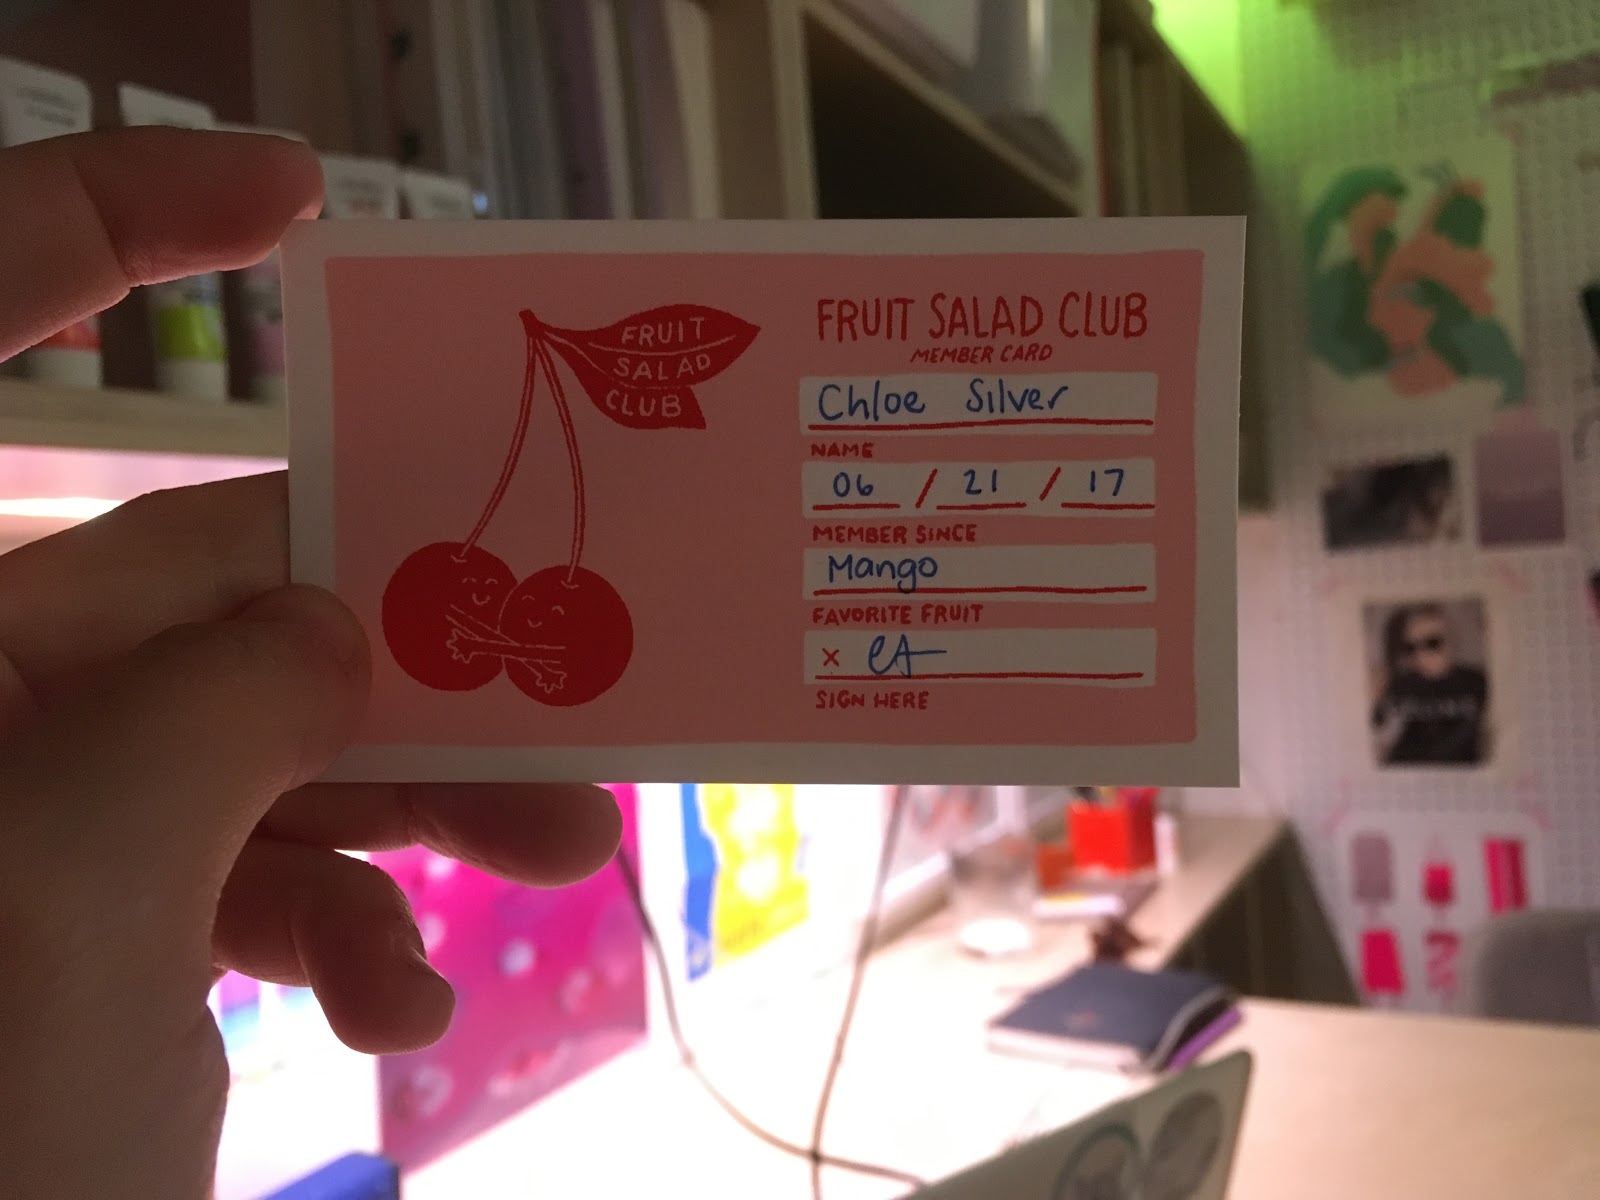 FRUIT
SALAD
CLUB
FRUIT SALAD CLUB
MEMBER CARD
Chloe Silver
NAME
06 / 21 / 17
MEMBER SINCE
Mango
FAVORITE FRUIT
x
SIGN HERE